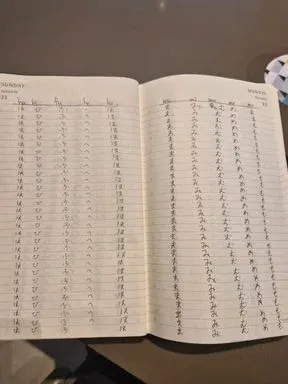 SUNDAY
11
ha hi fu he ho
は ひ ふ へ ほ
は ひ ふ へ ほ
は ひ ふ へ ほ
は ひ ふ へ ほ
は ひ ふ へ ほ
は ひ ふ へ ほ
は ひ ふ へ ほ
は ひ ふ へ ほ
は ひ ふ へ ほ
は ひ ふ へ ほ
は ひ ふ へ ほ
は ひ ふ へ ほ
は ひ ふ へ ほ
は ひ ふ へ ほ
は ひ ふ へ ほ
は ひ ふ へ ほ
は ひ ふ へ ほ
は ひ ふ へ ほ
は ひ ふ へ ほ
は ひ ふ へ ほ
は ひ ふ へ ほ
は ひ ふ へ ほ
は ひ ふ へ ほ
は ひ ふ へ ほ
は ひ ふ へ ほ
は ひ ふ へ ほ
は ひ ふ へ ほ
MONDAY
12
ma mi mu me mo
ま み む め も
ま み む め も
ま み む め も
ま み む め も
ま み む め も
ま み む め も
ま み む め も
ま み む め も
ま み む め も
ま み む め も
ま み む め も
ま み む め も
ま み む め も
ま み む め も
ま み む め も
ま み む め も
ま み む め も
ま み む め も
ま み む め も
ま み む め も
ま み む め も
ま み む め も
ま み む め も
ま み む め も
ま み む め も
ま み む め も
ま み む め も